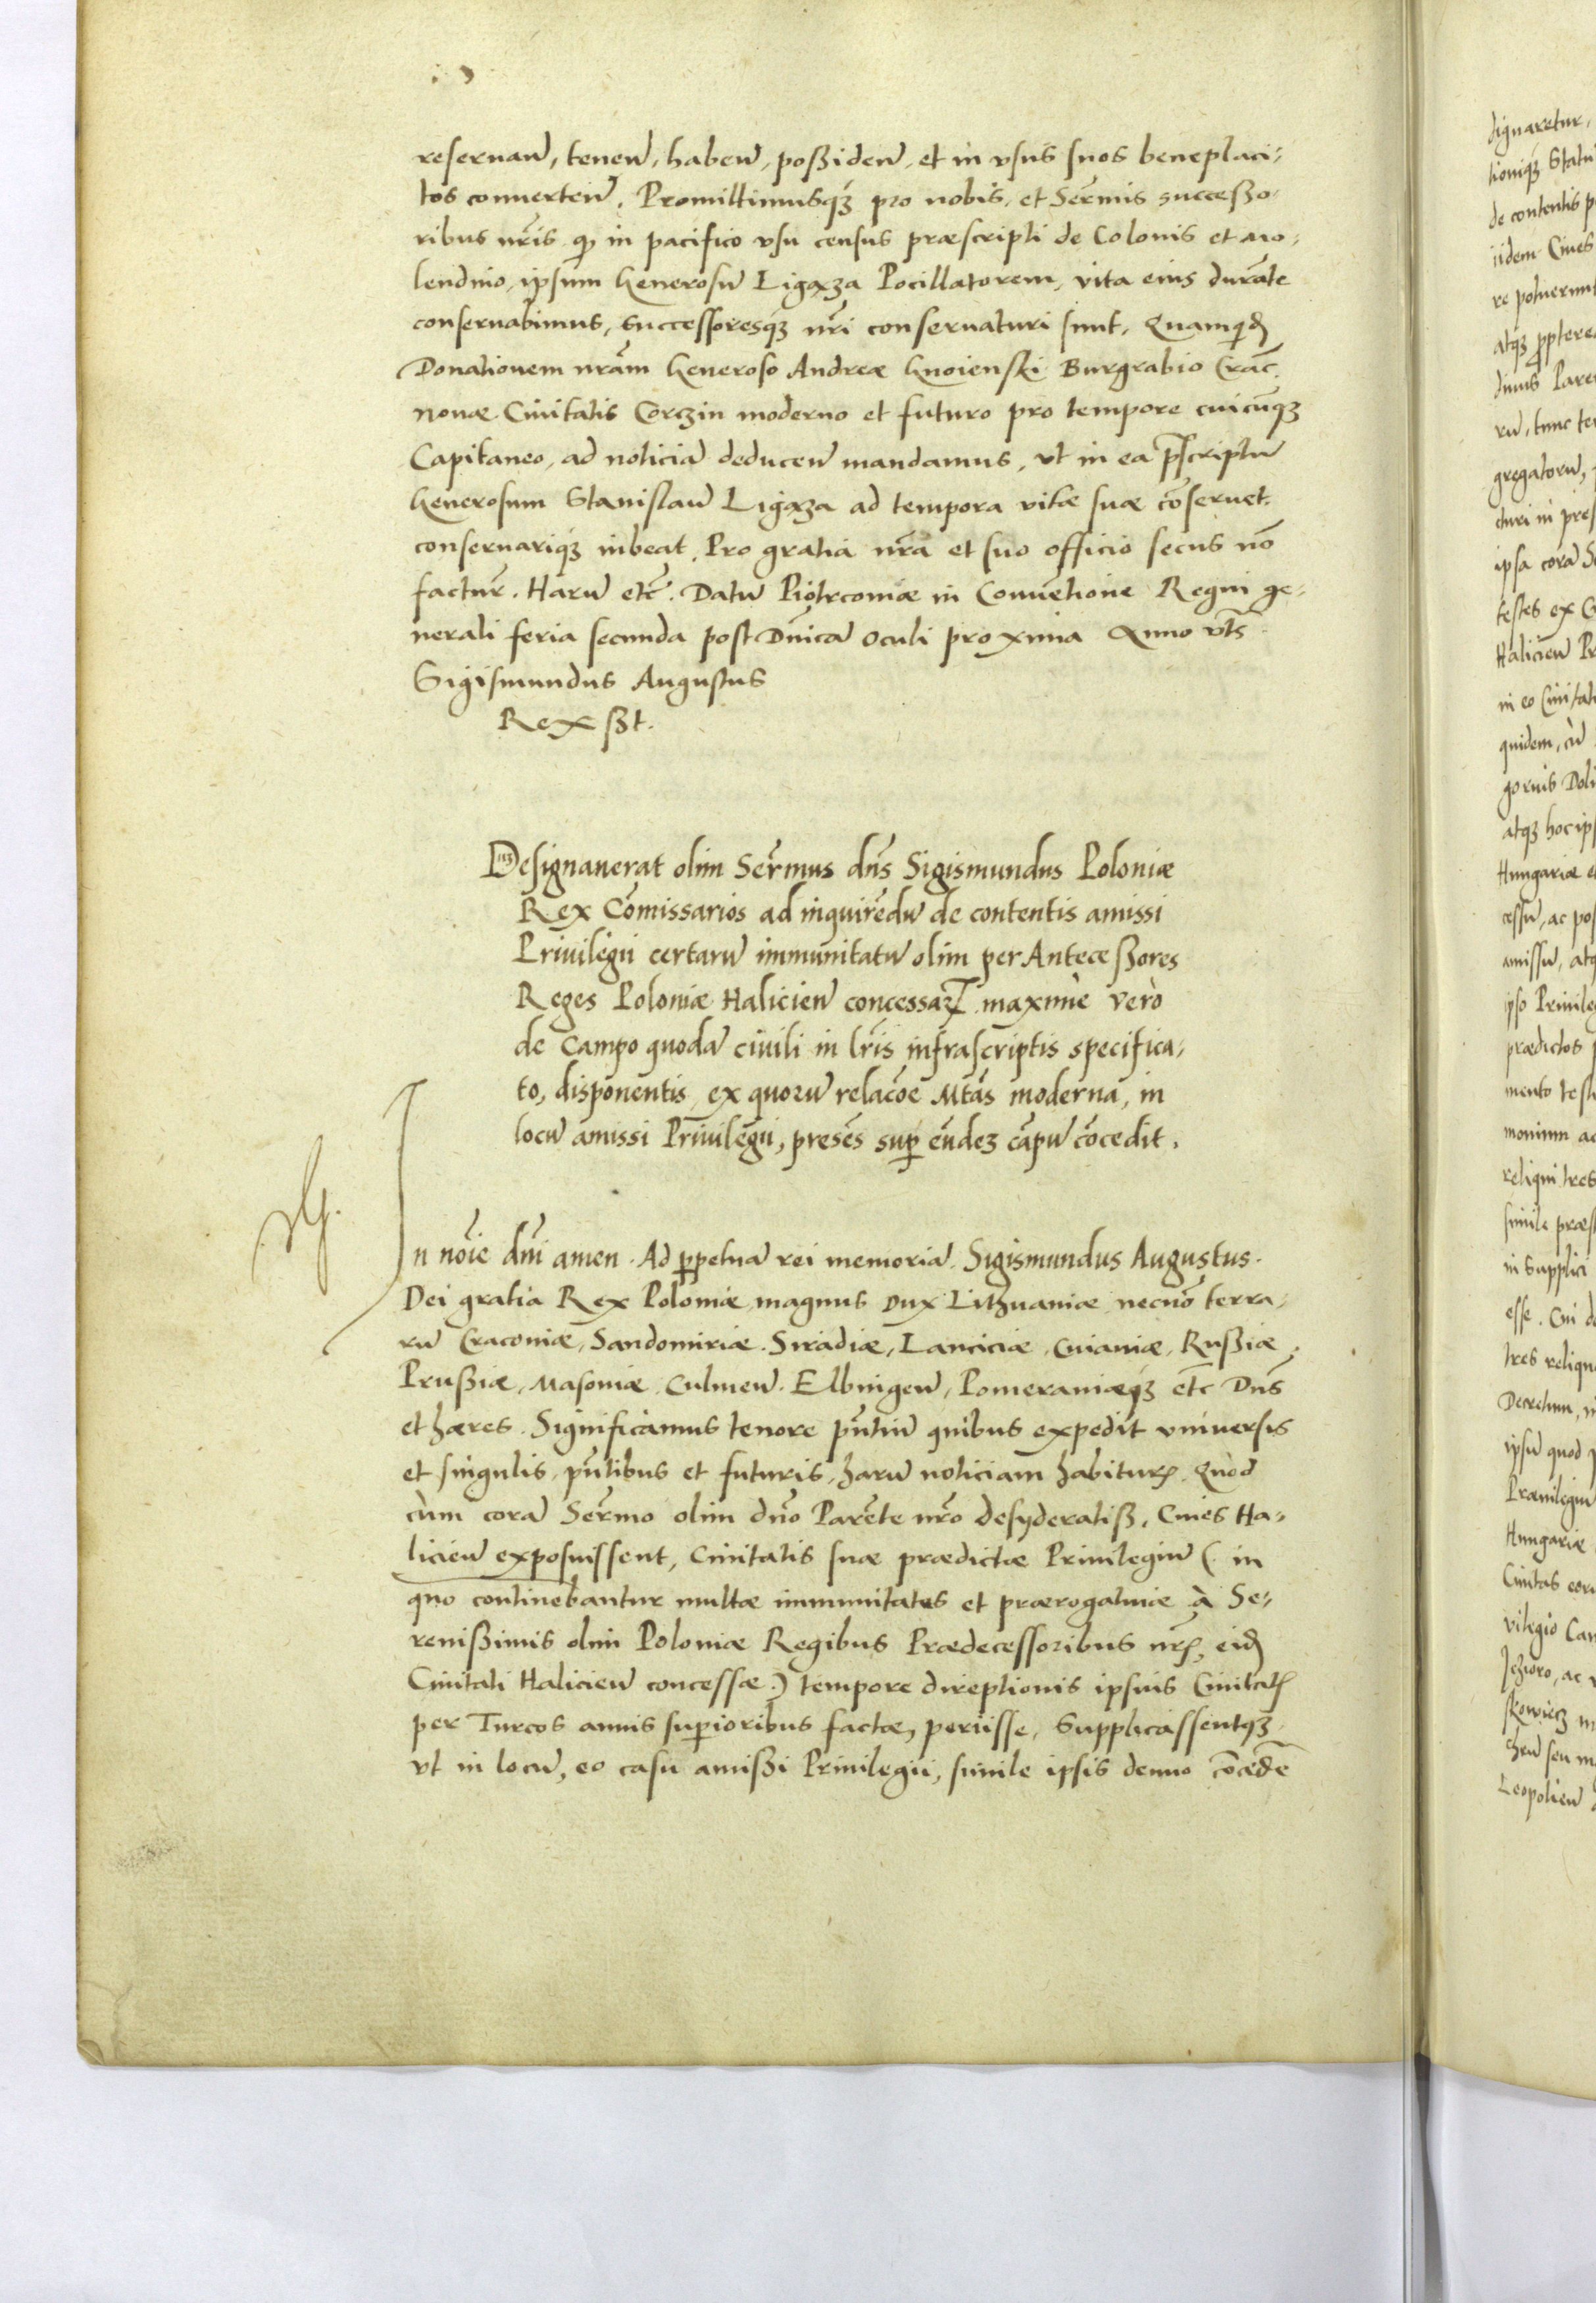 reseruan̄, tenen̄, haben̄, poßiden̄, et in vsus suos beneplaci-
tos conuerten̄. Promittimusqȝ pro nobis, et Serm̄is successo-
ribus nr̄is qꝫ in pacifico vsu census præscripti de Colonis et mo-
lendino, ipsum Generosū Ligąza Pocillatorem, vita eius durāte
conseruabimus, successoresqȝ nr̄i conseruaturi sunt. Quamqid̄
Donationem nrām Generoso Andreæ Gnoienski Burgrabio Crac̄.
nouæ Ciuitatis Corczin moderno et futuro pro tempore cuicūqȝ
Capitaneo, ad noticiā deducen̄ mandamus, vt in ea p̄scriptū
Generosum Stanislaū Ligąza ad tempora vitæ suæ cōseruet.
conseruariqȝ iubeat. Pro gratia nr̄a et suo officio secus nō
factur̄. Harū etc̄. Datū Piotrcouiæ in Conuētione Regni ge-
nerali feria secunda post Dn̄icā Oculi proxima Anno vt̄s
Sigismundus Augustus
Rex ßt.
Designauerat olim Serm̄us dn̄s Sigismundus Poloniæ
Rex Cōmissarios ad inquirēdū de contentis amissi
Priuilegii certarū immunitatū olim per Anteceßores
Reges Poloniæ Halicien̄ concessaꝝ maxime verò
de Campo quodā ciuili in lr̄is infrascriptis specifica-
to, disponentis, ex quorū relacōe Mtās moderna, in
locū amissi Priuilegii, presēs suꝑ eūdeȝ cāpū cōcedit.
In nōie dn̄i amen. Ad ꝑpetuā rei memoriā. Sigismundus Augustus.
Dei gratia Rex Poloniæ magnus Dux Lithuaniæ necnō terra-
rū Cracouiæ, Sandomiriæ. Siradiæ, Lanciciæ, Cuiauiæ, Rußiæ,
Prußiæ, Masouiæ, Culmen̄. Elbingen̄, Pomeraniæqȝ etc̄ Dn̄s
et hæres. Significamus tenore pn̄tiū quibus expedit vniuersis
et singulis, pn̄tibus et futuris, harū noticiam habituꝝ. Quod
cùm corā Serm̄o olim dn̄o Parēte nr̄o desyderatiß. Ciues Ha-
licien̄ exposuissent, Ciuitatis suæ prædictæ Priuilegiū (in
quo continebantur multæ immunitates et prærogatiuæ à Se-
renißimis olim Poloniæ Regibus Prædecessoribus nr̄ꝭ, eid̄
Ciuitati Halicien̄ concessæ.) tempore direptionis ipsius Ciuitatꝭ
per Turcos annis suꝑioribus factæ, periisse, Supplicassentqȝ
vt in locū, eo casu amißi Priuilegii, simile ipsis denuo cōcedē
dignaretur,
tioniqȝ Statu
de contentis p
iidem Ciues
re potuerunt
atqȝ ꝓptere
gregatorū,
ipsa corā S
testes ex C
Halicien̄ Pr
in eo Ciuitat
quidem, cū
atqȝ hoc ip
Hungariæ e
cessū, ac pos
amissū, atq
ipso Priuileg
prædictos
mento test
monium ac
reliqui tres
simile præs
in Supplici
esse. Cui d
tres reliqu
Decretum,
ipsū quod
Priuilegiū
Hungariæ
Ciuitas eor
vilegio Can
chrū seu m
Leopolien̄